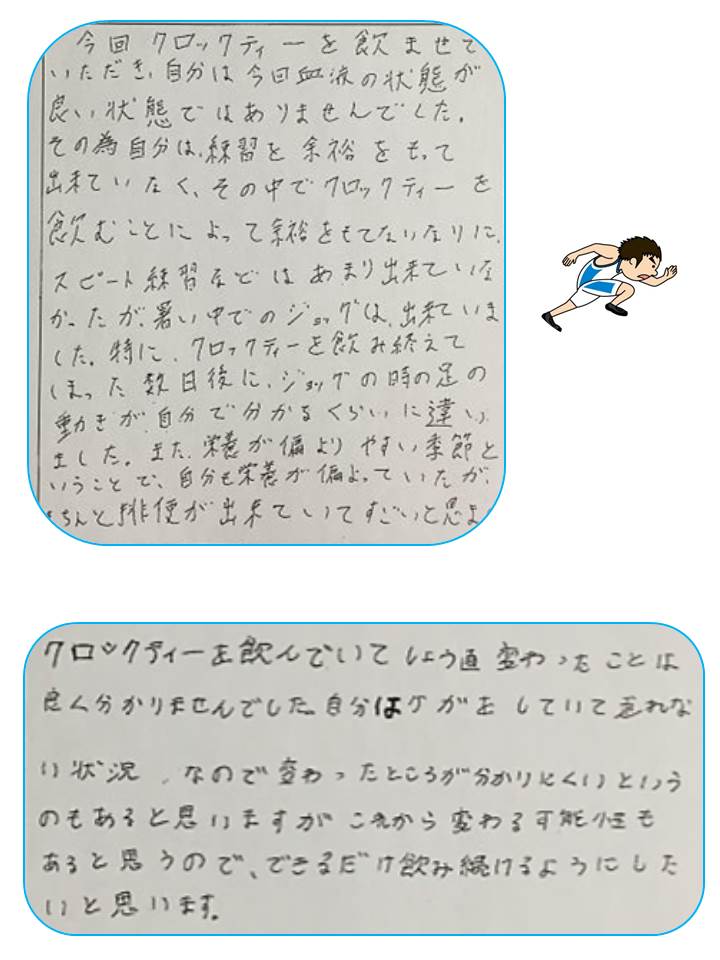 今回クロックティーを飲ませて
いただき、自分は今回血液の状態が
良い状態ではありませんでした。
その為自分は、練習を余裕をもって
出来ていなく、その中でクロックティーを
飲むことによって余裕をもてないなりに、
スピード練習などはあまり出来ていな
かったが、暑い中でのジョッグは、出来ていま
した。特に、クロックティーを飲み終えて
しまった数日後に、ジョッグの時の足の
動きが、自分で分かるくらいに違い
ました。また、栄養が偏よりやすい季節と
いうことで、自分も栄養が偏よっていたが、
きちんと排便が出来ていてすごいと思
クロックティーを飲んでいてしょう直変わったことは
良く分かりませんでした。自分はケガをしていて走れな
い状況、なので変わったところが分かりにくいという
のもあると思いますがこれから変わる可能性も
あると思うので、できるだけ飲み続けるようにした
いと思います。